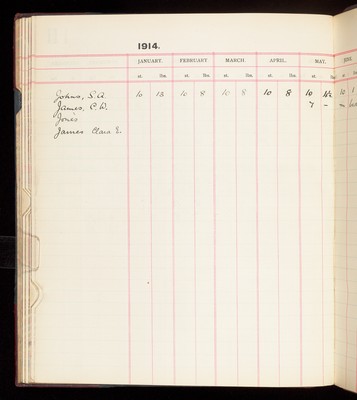 1914.
JANUARY. FEBRUARY MARCH. APRIL. MAY.
st. lbs. st. lbs. st. lbs. st. lbs. st. lbs. st.
Johns, S.A. 10 13 10 8 10 8 10 8 10 10
James, C.W. 7 -
Jones
James